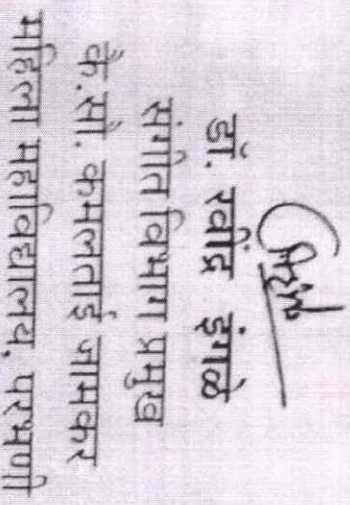 डॉ. रवींद्र इंगळे
संगीत विभाग प्रमुख
के.सौ. कमलताई जामकर
महिला महाविद्यालय, परभणी